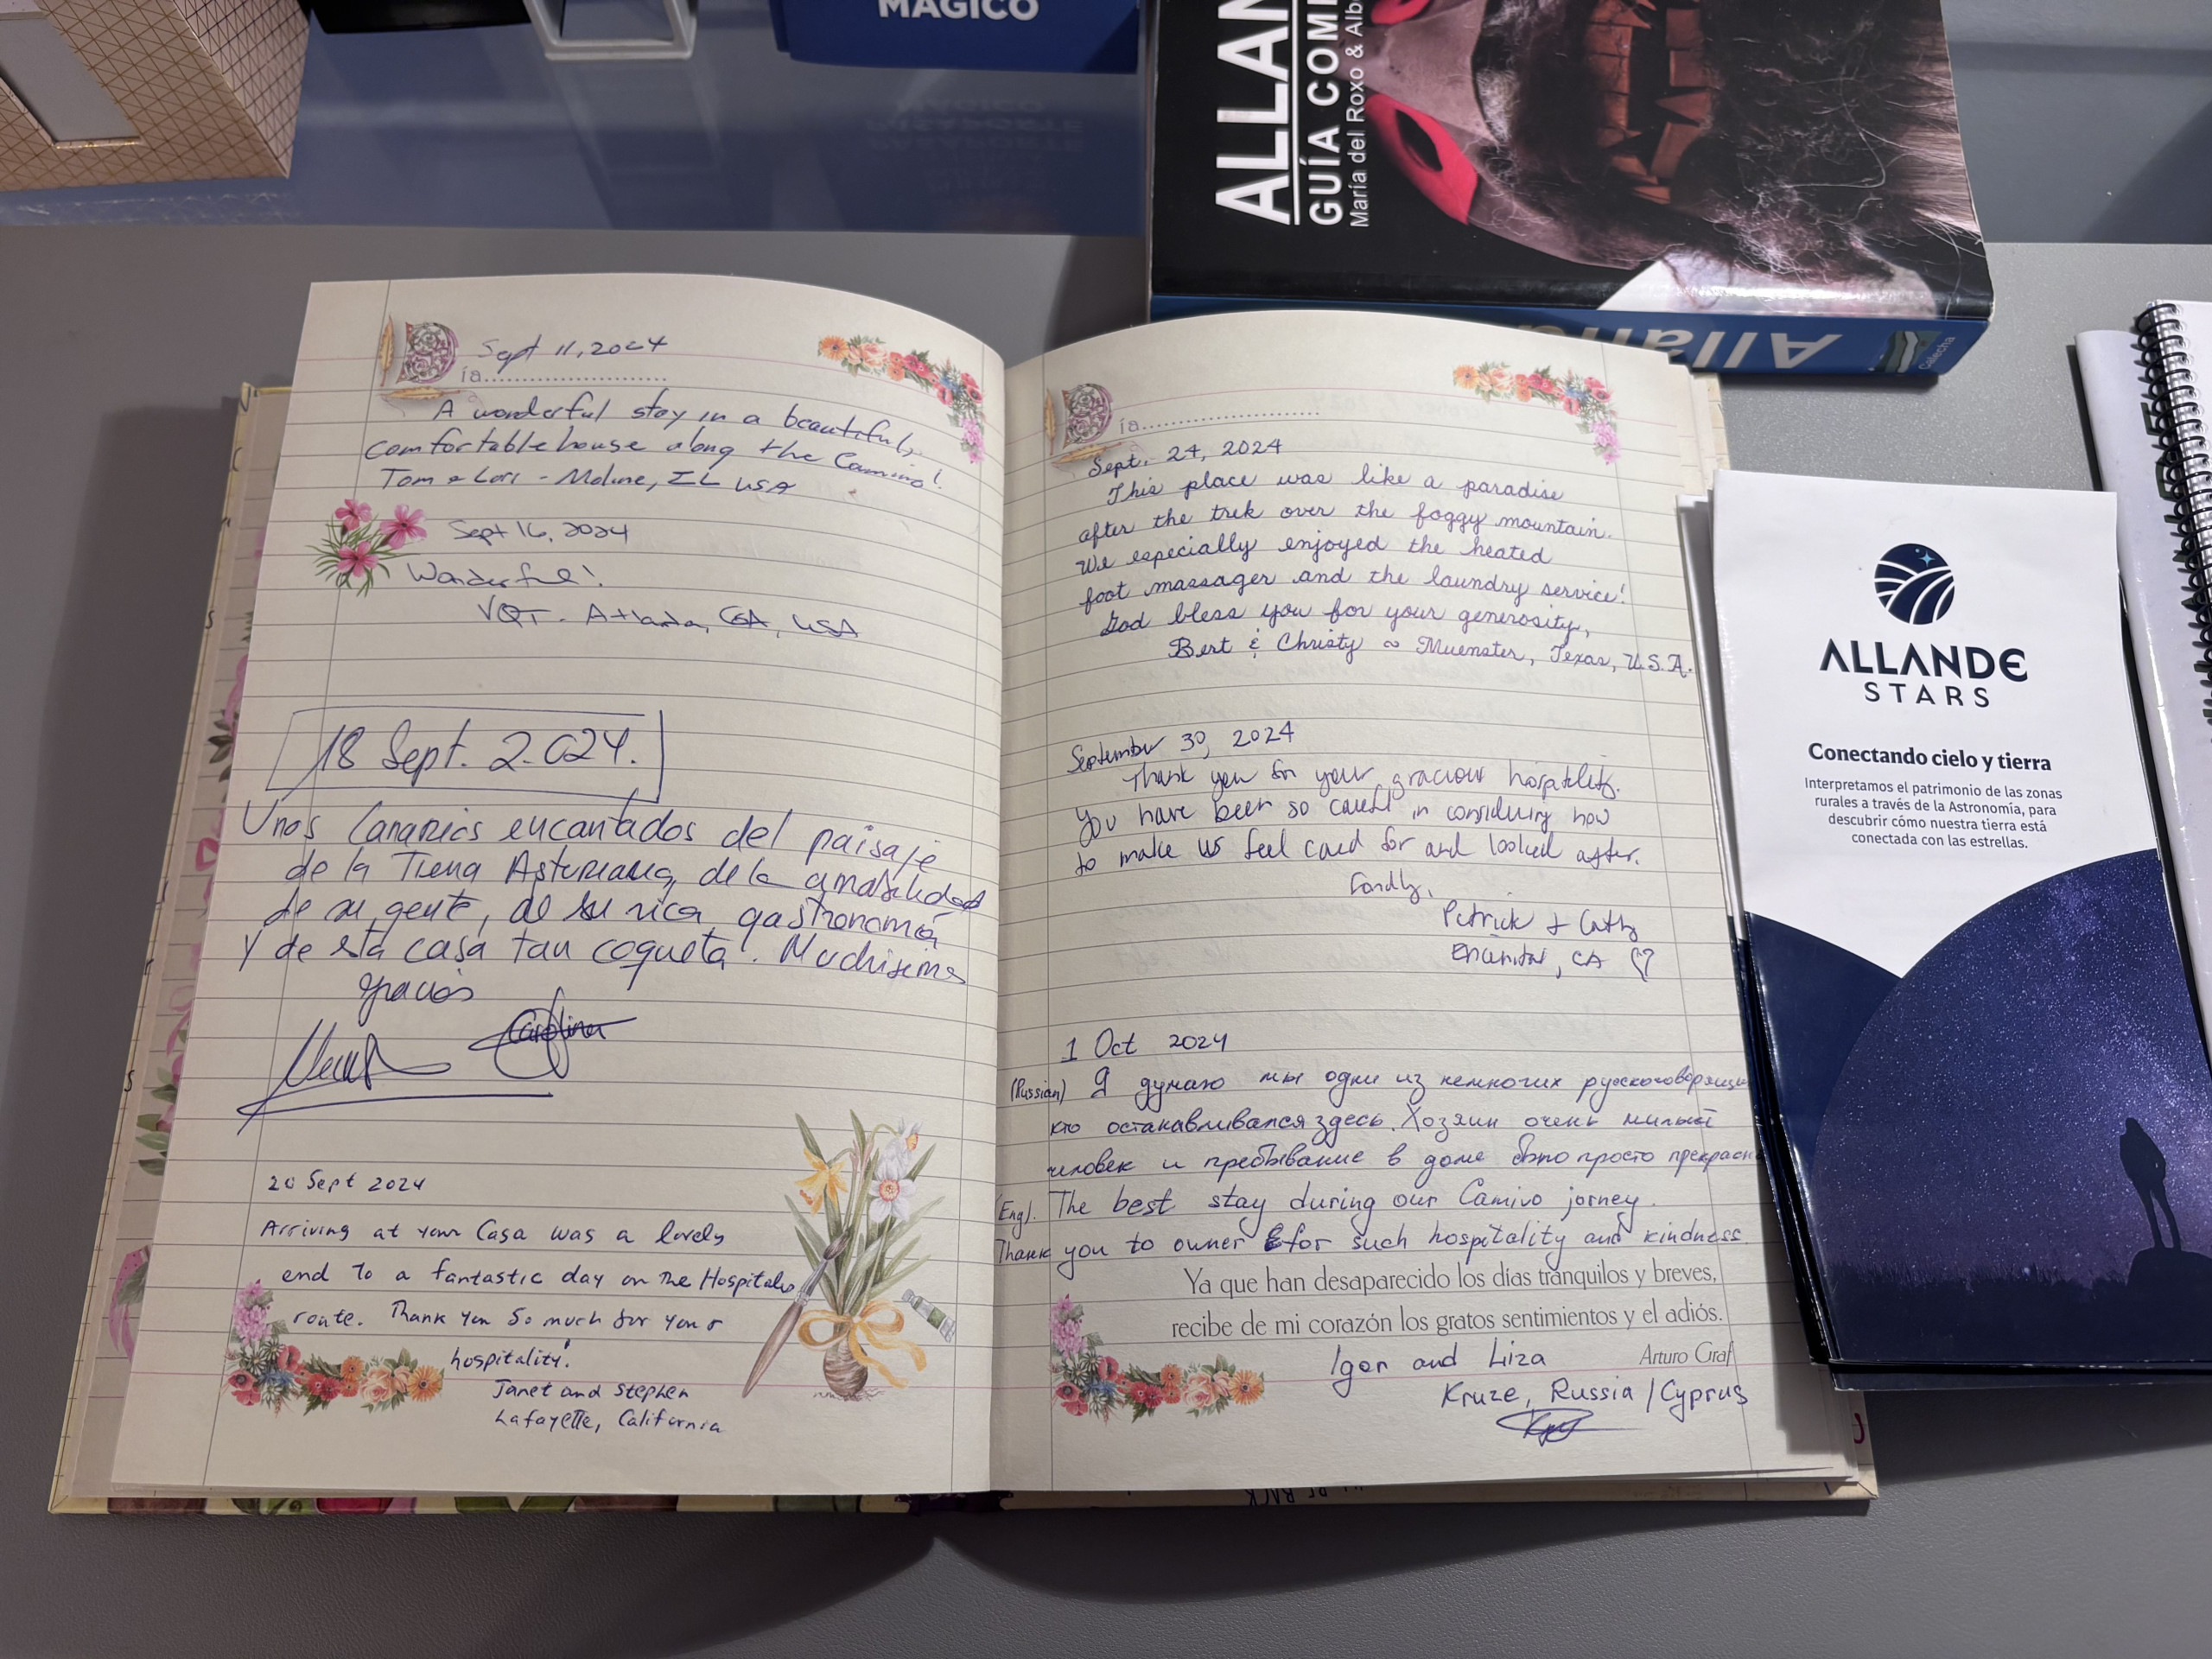 MÁGICO
PASAPORTE
MÁGICO
ALLAN
GUÍA COM
María del Roxo & Alb
Allan
Calecha
Día
Sept 11, 2024
A wonderful stay in a beautiful,
comfortable house along the Camino!
Tom & Lori - Moline, IL USA
Sept 16, 2024
Wonderful!
VQT - Atlanta, GA, USA
18 Sept. 2.024.
Unos Canarios encantados del paisaje
de la Tierra Asturiana, de la amabilidad
de su gente, de su rica gastronomía
y de esta casa tan coqueta. Muchísimas
gracias
Carolina
20 Sept 2024
Arriving at your Casa was a lovely
end to a fantastic day on the Hospitales
route. Thank you so much for your
hospitality!
Janet and Stephen
Lafayette, California
Día
Sept. 24, 2024
This place was like a paradise
after the trek over the foggy mountain.
We especially enjoyed the heated
foot massager and the laundry service!
God bless you for your generosity,
Bert & Christy ~ Muenster, Texas, U.S.A.
September 30, 2024
Thank you for your gracious hospitality.
You have been so careful in considering how
to make us feel cared for and looked after.
Fondly,
Patrick + Cathy
Encinitas, CA
1 Oct 2024
(Russian) Я думаю мы одни из немногих русскоговорящи
кто останавливался здесь. Хозяин очень милый
человек и пребывание в доме было просто прекрасн
(Eng). The best stay during our Camino jorney.
Thank you to owner for such hospitality and kindness.
Ya que han desaparecido los días tranquilos y breves,
recibe de mi corazón los gratos sentimientos y el adiós.
Arturo Graf
Igor and Liza
Kruze, Russia / Cyprus
ALLANDE
STARS
Conectando cielo y tierra
Interpretamos el patrimonio de las zonas
rurales a través de la Astronomía, para
descubrir cómo nuestra tierra está
conectada con las estrellas.